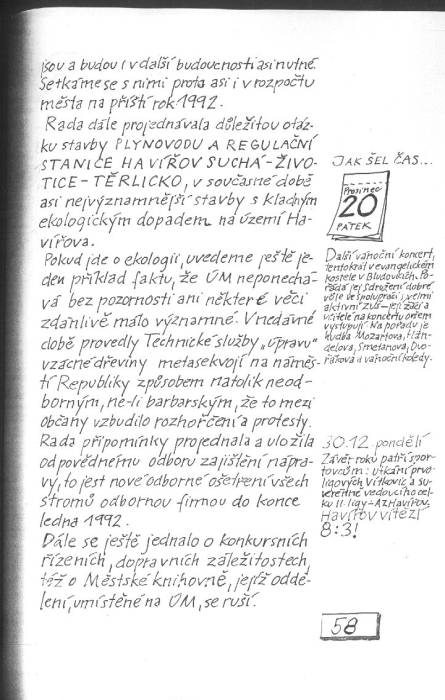 jsou a budou i v další budoucnosti asi nutné.
Setkáme se s nimi proto asi i v rozpočtu
města na příští rok 1992.
Rada dále projednávala důležitou otáz-
ku stavby PLYNOVODU A REGULAČNÍ
STANICE HAVÍŘOV SUCHÁ-ŽIVO-
TICE-TĚRLICKO, v současné době
asi nejvýznamnější stavby s kladným
ekologickým dopadem na území Ha-
vířova.
Pokud jde o ekologii, uvedeme ještě je-
den příklad faktu, že ÚM neponechá-
vá bez pozornosti ani některé věci
zdánlivě málo významné. V nedávné
době provedly Technické služby „úpravu"
vzácné dřeviny metasekvojí na náměs-
tí Republiky způsobem natolik neod-
borným, ne-li barbarským, že to mezi
občany vzbudilo rozhořčení a protesty.
Rada připomínky projednala a uložila
odpovědnému odboru zajištění nápra-
vy, to jest nové odborné ošetření všech
stromů odbornou firmou do konce
ledna 1992.
Dále se ještě jednalo o konkursních
řízeních, dopravních záležitostech,
též o Městské knihovně, jejíž oddě-
lení, umístěné na ÚM, se ruší.
JAK ŠEL ČAS...
Prosinec
20
PÁTEK
Další vánoční koncert,
tentokrát v evangelickém
kostele v Bludovicích. Po-
řádá jej Sdružení dobré
vůle ve spolupráci s velmi
aktivní ZUŠ - její žáci a
učitelé na koncertu ovšem
vystupují. Na pořadu je
hudba Mozartova, Hän-
delova, Smetanova, Dvo-
řákova a vánoční koledy.
30.12. pondělí
Závěr roku patří spor-
tovcům: utkání prvo-
ligových Vítkovic a su-
verénně vedoucího cel-
ku II. ligy - AZ Havířov.
Havířov vítězí
8:3!
58